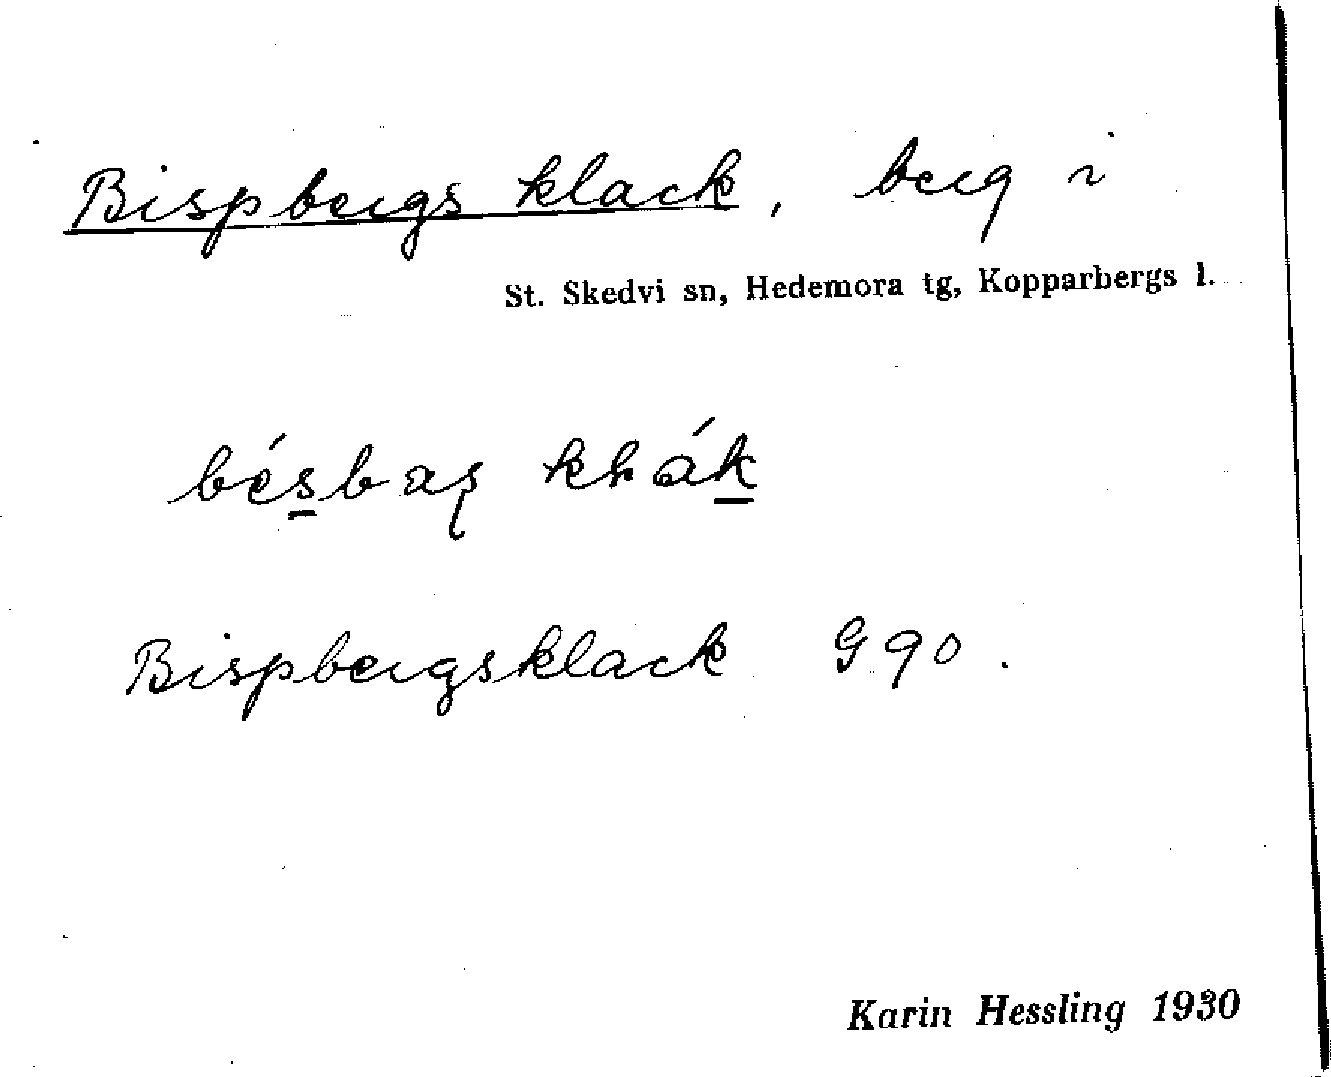 Bispbergs klack, berg i
St. Skedvi sn, Hedemora tg, Kopparbergs l.
Bispbergsklack G 90.
Karin Hessling 1930